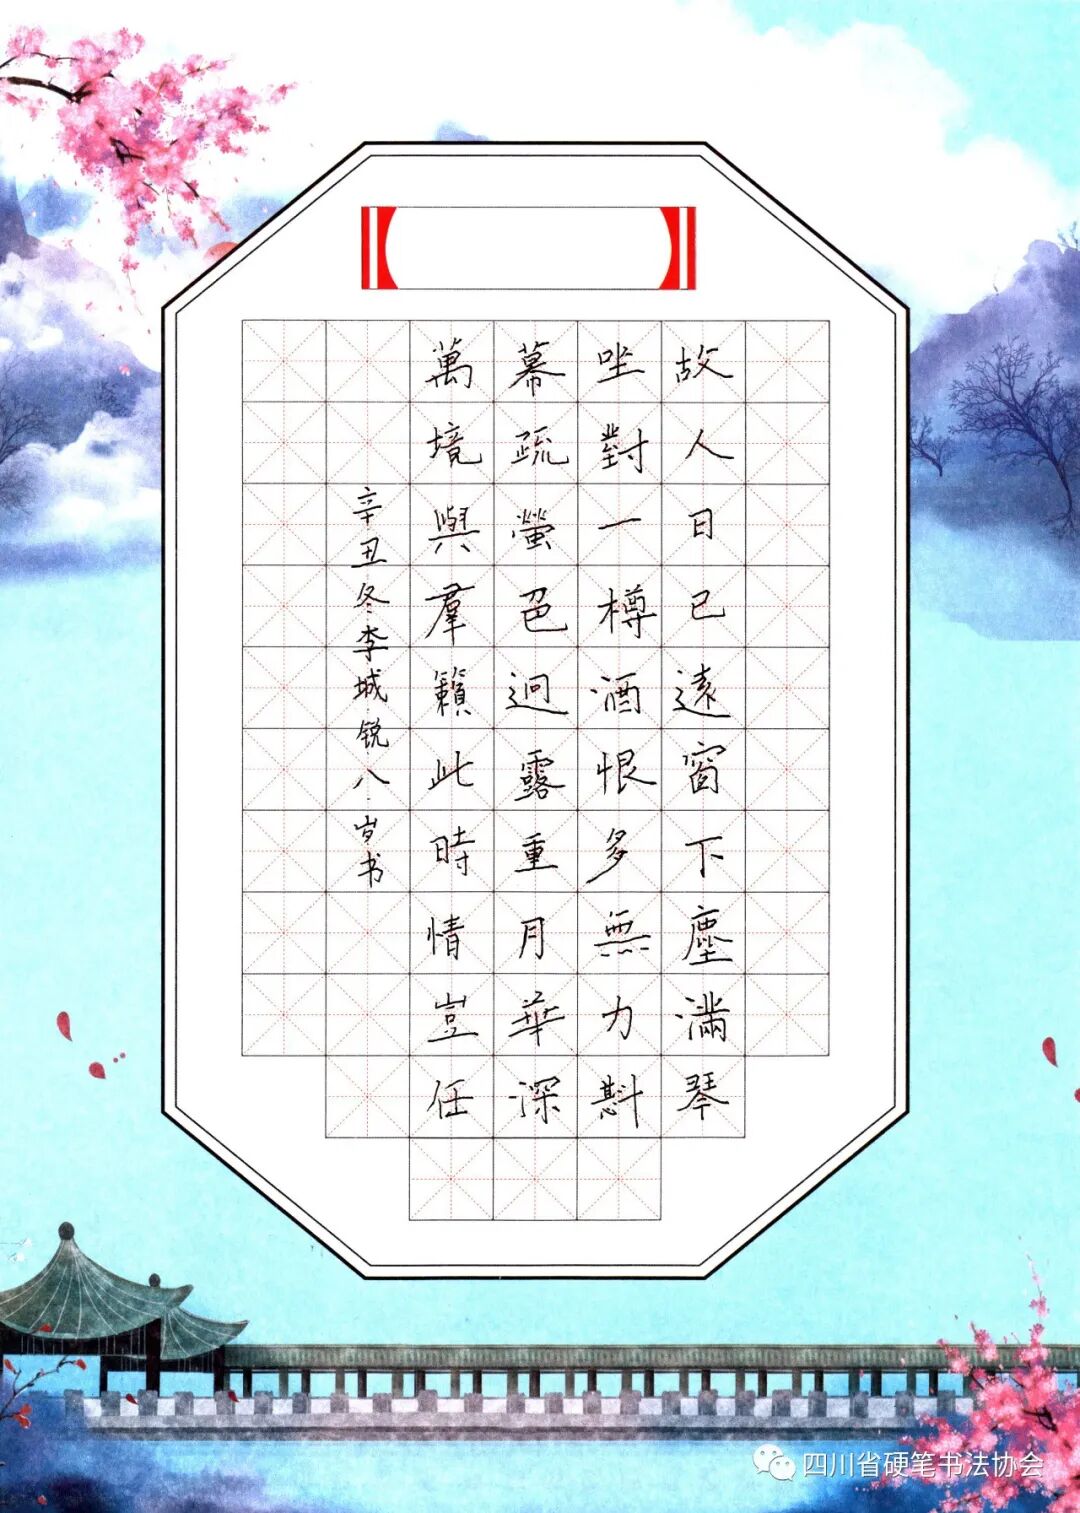 故人日已遠窗下塵滿琴
坐對一樽酒恨多無力斟
幕疏螢色迥露重月華深
萬境與羣籟此時情豈任
辛丑冬李城锐八岁书
四川省硬笔书法协会